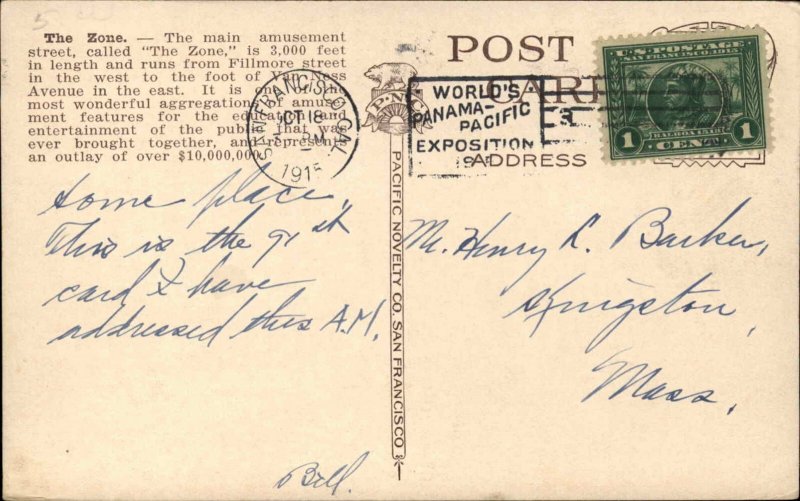 The Zone. — The main amusement
street, called "The Zone," is 3,000 feet
in length and runs from Fillmore street
in the west to the foot of Van Ness
Avenue in the east. It is one of the
most wonderful aggregations of amuse-
ment features for the education and
entertainment of the public that was
ever brought together, and represents
an outlay of over $10,000,000.
SAN FRANCISCO, CAL.
OCT 18
1915
P.N.C.
PACIFIC NOVELTY CO. SAN FRANCISCO
POST
CARD
WORLD'S
PANAMA-
PACIFIC
EXPOSITION
3
ADDRESS
U.S. POSTAGE
SAN FRANCISCO 1915
BALBOA 1513
1 CENT 1
Some place,
This is the 91st
card I have
addressed this A.M.
Bill.
Mr. Henry L. Barker,
Kingston,
Mass.